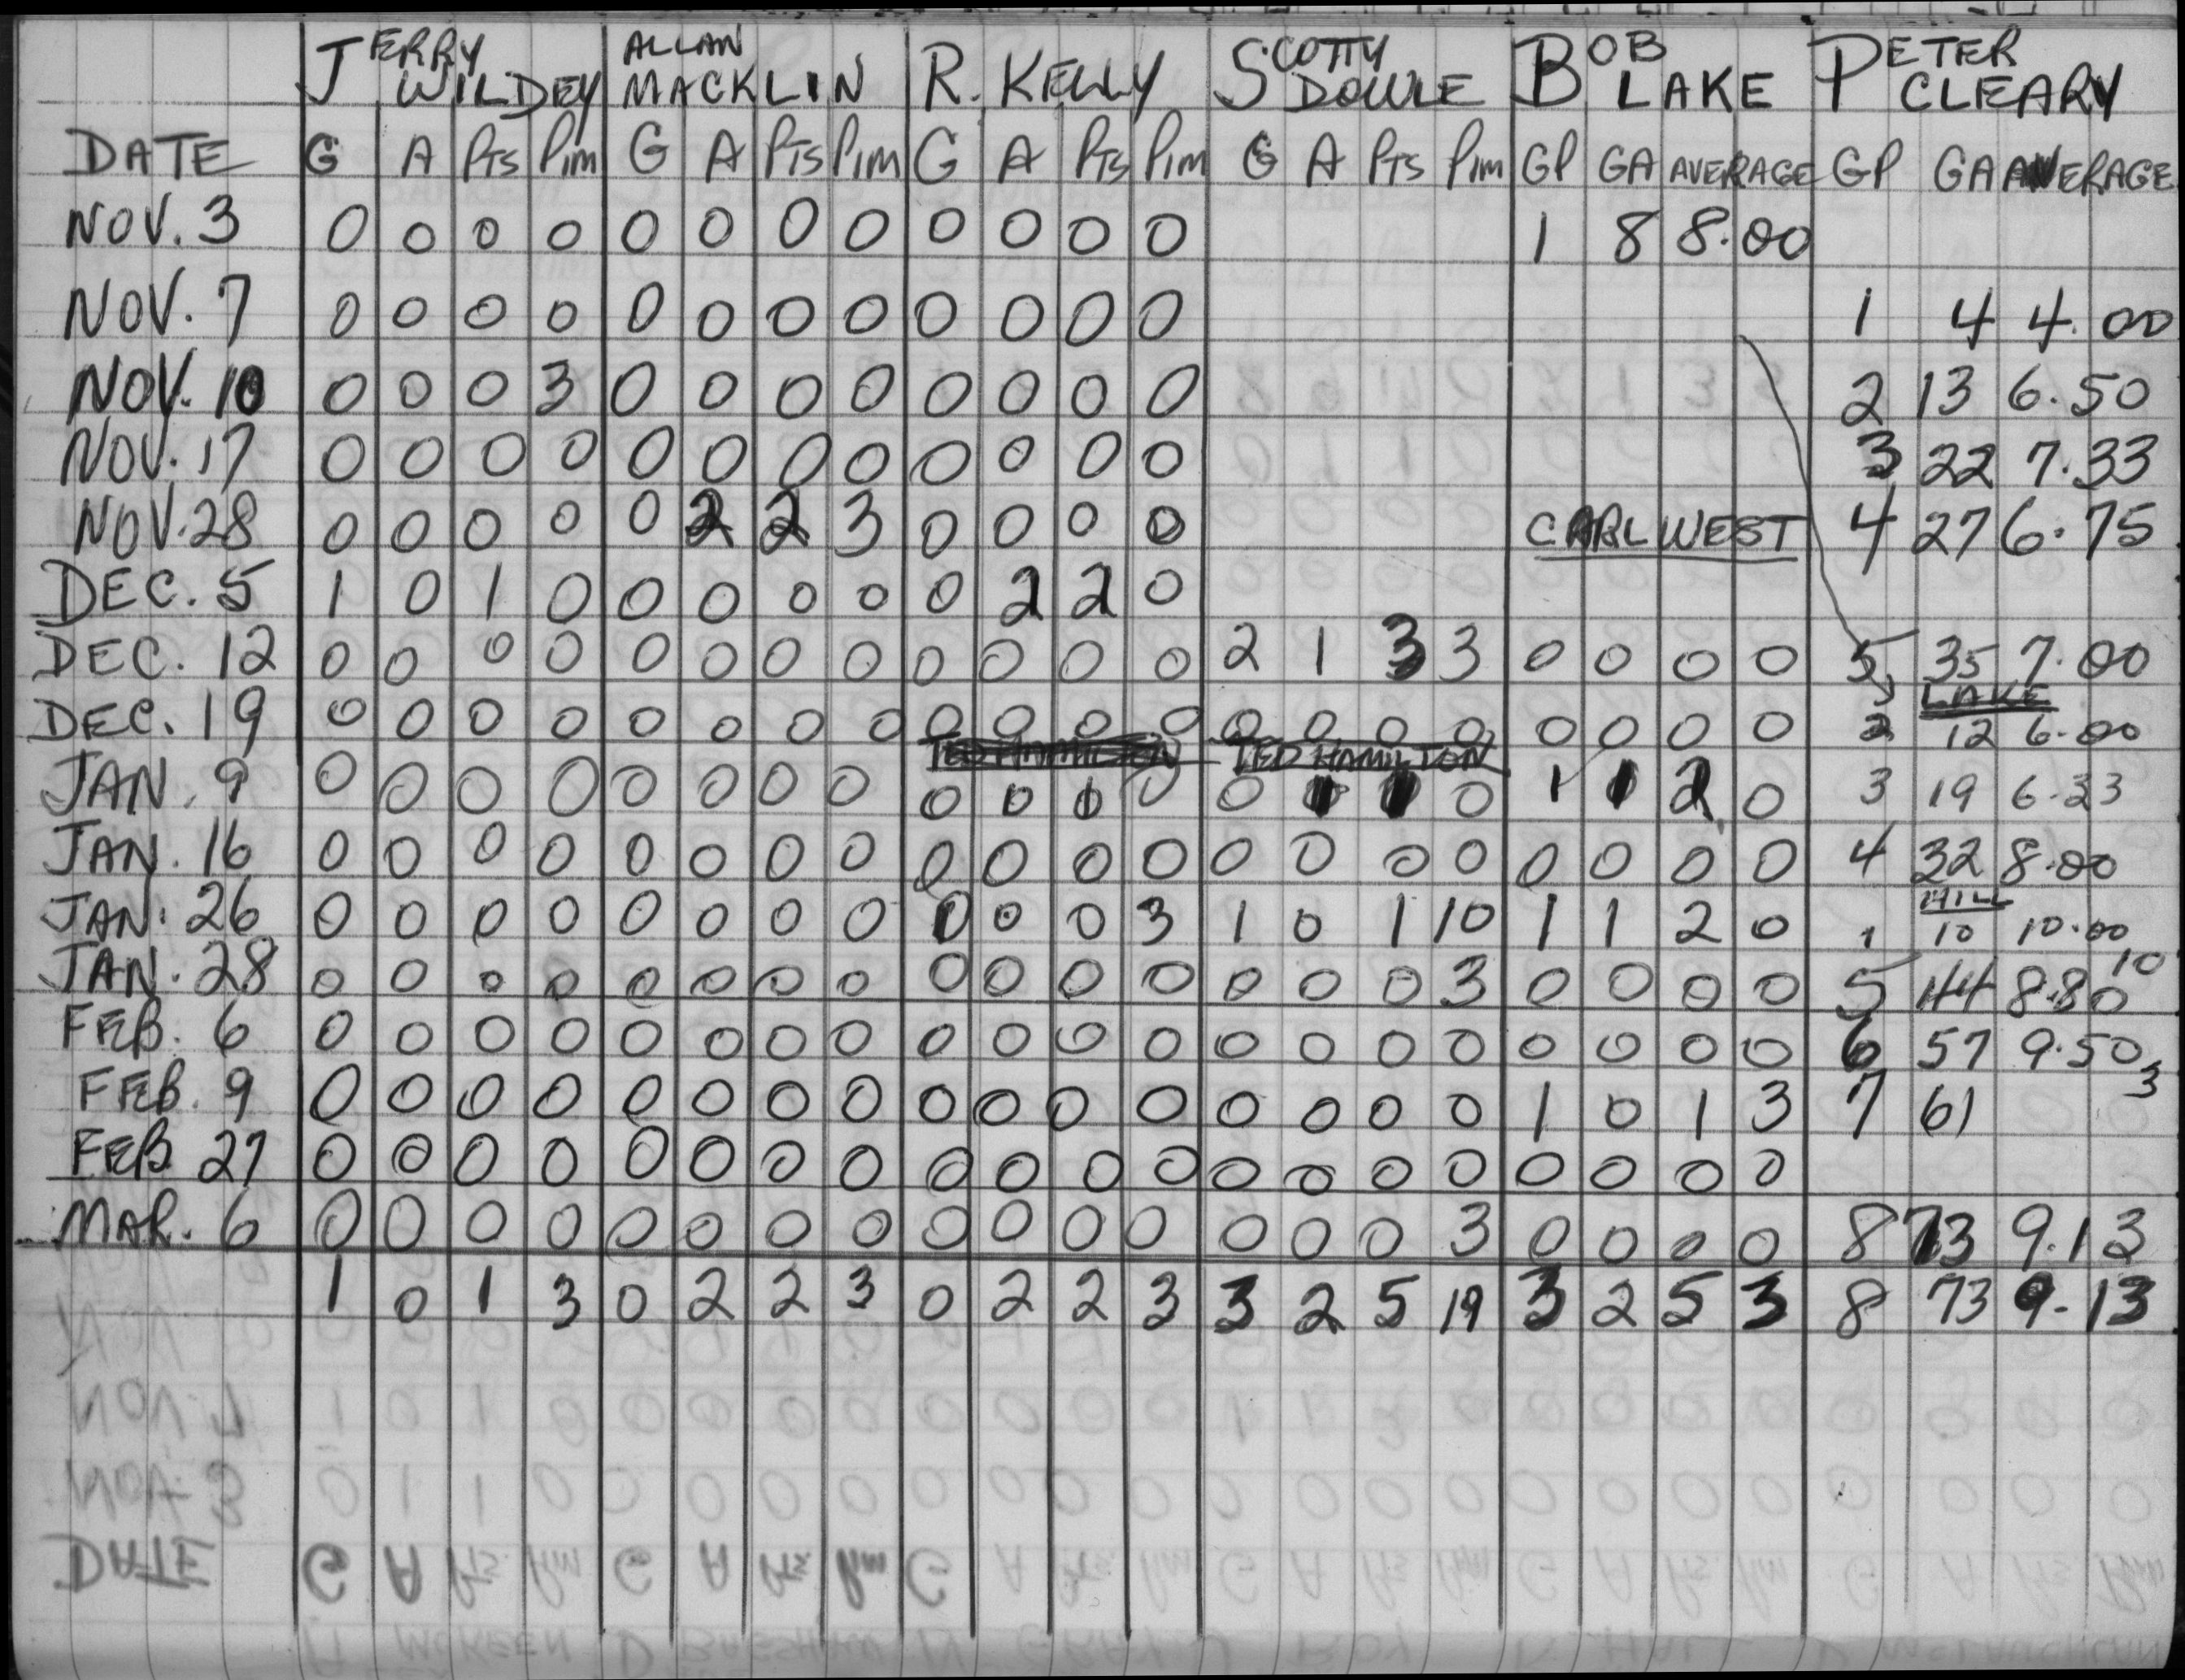 JERRY WILDEY ALLAN MACKLIN R. KELLY SCOTTY DOWLE BOB LAKE PETER CLEARY
DATE G A PTS PIM G A PTS PIM G A PTS PIM G A PTS PIM GP GA AVERAGE GP GA AVERAGE
NOV. 3 0 0 0 0 0 0 0 0 0 0 0 0 1 8 8.00
NOV. 7 0 0 0 0 0 0 0 0 0 0 0 0 1 4 4.00
NOV. 10 0 0 0 3 0 0 0 0 0 0 0 0 2 13 6.50
NOV. 17 0 0 0 0 0 0 0 0 0 0 0 0 3 22 7.33
NOV. 28 0 0 0 0 0 2 2 3 0 0 0 0 CARL WEST 4 27 6.75
DEC. 5 1 0 1 0 0 0 0 0 0 2 2 0
DEC. 12 0 0 0 0 0 0 0 0 0 0 0 0 2 1 3 3 0 0 0 0 5 35 7.00
LAKE
DEC. 19 0 0 0 0 0 0 0 0 0 0 0 0 0 0 0 0 0 0 0 0 2 12 6.00
TED HAMILTON TED HAMILTON
JAN. 9 0 0 0 0 0 0 0 0 0 0 0 0 1 1 0 1 1 2 0 3 19 6.33
JAN. 16 0 0 0 0 0 0 0 0 0 0 0 0 0 0 0 0 0 0 0 0 4 32 8.00
HILL
JAN. 26 0 0 0 0 0 0 0 0 0 0 3 1 0 1 10 1 1 2 0 1 10 10.00
10
JAN. 28 0 0 0 0 0 0 0 0 0 0 0 0 0 0 0 3 0 0 0 0 5 44 8.80
FEB. 6 0 0 0 0 0 0 0 0 0 0 0 0 0 0 0 0 0 0 0 0 6 57 9.50
3
FEB. 9 0 0 0 0 0 0 0 0 0 0 0 0 0 0 0 0 1 0 1 3 7 61
FEB 27 0 0 0 0 0 0 0 0 0 0 0 0 0 0 0 0 0 0 0 0
MAR. 6 0 0 0 0 0 0 0 0 0 0 0 0 0 0 0 3 0 0 0 0 8 73 9.13
1 0 1 3 0 2 2 3 0 2 2 3 3 2 5 19 3 2 5 3 8 73 9.13